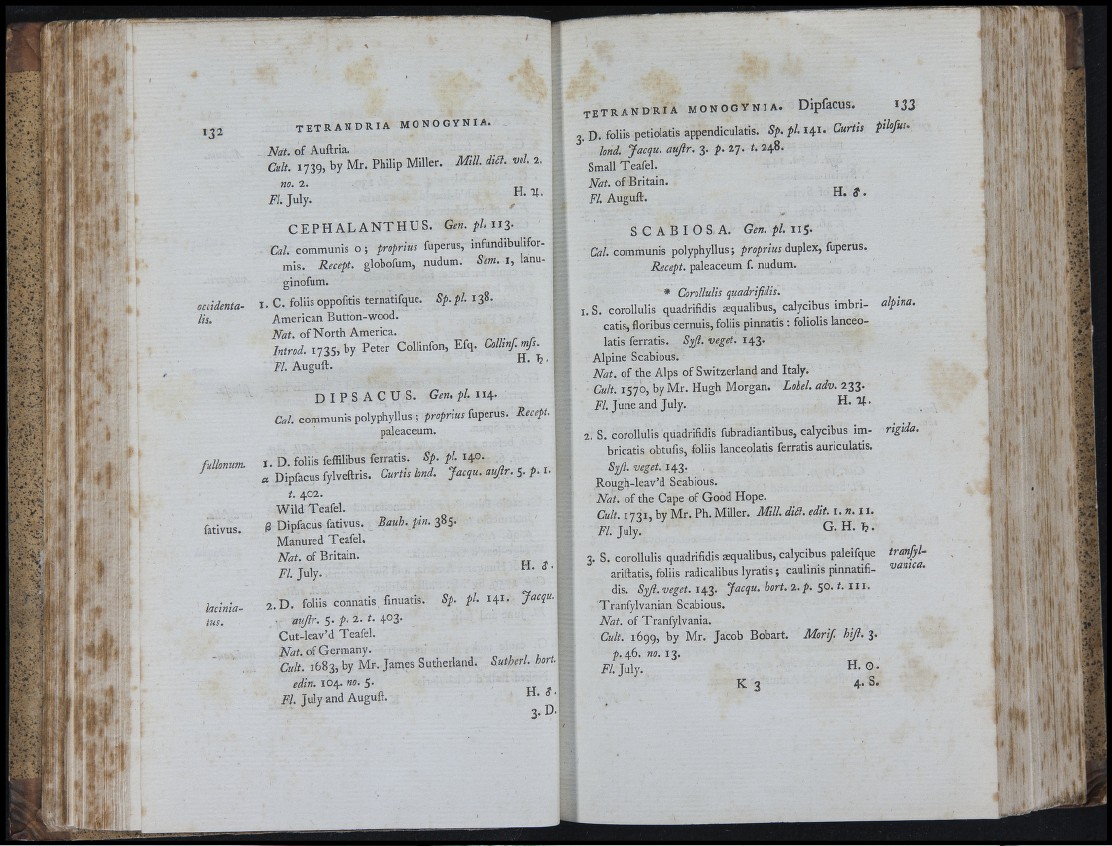 132
TETRANDRIA MONOGYNIA.
Nat. of Auſtria.
Cult. 1739, by Mr. Philip Miller. Mill. dict. vol. 2.
no. 2.
Fl. July. H. ♃.
CEPHALANTHUS. Gen. pl. 113.
Cal. communis 0; proprius ſuperus, infundibulifor-
mis. Recept. globoſum, nudum. Sem. 1, lanu-
ginoſum.
occidenta-
lis.
1. C. foliis oppoſitis ternatiſque. Sp. pl. 138.
American Button-wood.
Nat. of North America.
Introd. 1735, by Peter Collinſon, Eſq. Collinſ. mſs.
Fl. Auguſt. H. ♄.
DIPSACUS. Gen. pl. 114.
Cal. communis polyphyllus; proprius ſuperus. Recept.
paleaceum.
fullonum.
1. D. foliis ſeſſilibus ſerratis. Sp. pl. 140.
α Dipſacus ſylveſtris. Curtis lond. Jacqu. auſtr. 5. p. 1.
t. 402.
Wild Teaſel.
ſativus.
β Dipſacus ſativus. Bauh. pin. 385.
Manured Teaſel.
Nat. of Britain.
Fl. July. H. ♂.
lacinia-
tus.
2. D. foliis connatis ſinuatis. Sp. pl. 141. Jacqu.
auſtr. 5. p. 2. t. 403.
Cut-leav'd Teaſel.
Nat. of Germany.
Cult. 1683, by Mr. James Sutherland. Sutherl. hort.
edin. 104. no. 5.
Fl. July and Auguſt. H. ♂.
3. D.
TETRANDRIA MONOGYNIA. Dipſacus. 133
3. D. foliis petiolatis appendiculatis. Sp. pl. 141. Curtis
piloſus.
lond. Jacqu. auſtr. 3. p. 27. t. 248.
Small Teaſel.
Nat. of Britain.
Fl. Auguſt. H. ♂.
SCABIOSA. Gen. pl. 115.
Cal. communis polyphyllus; proprius duplex, ſuperus.
Recept. paleaceum ſ. nudum.
* Corollulis quadrifidis.
1. S. corollulis quadrifidis æqualibus, calycibus imbri-
alpina.
catis, floribus cernuis, foliis pinnatis: foliolis lanceo-
latis ſerratis. Syſt. veget. 143.
Alpine Scabious.
Nat. of the Alps of Switzerland and Italy.
Cult. 1570, by Mr. Hugh Morgan. Lobel. adv. 233.
Fl. June and July. H. ♃.
2. S. corollulis quadrifidis ſubradiantibus, calycibus im-
rigida.
bricatis obtuſis, foliis lanceolatis ſerratis auriculatis.
Syſt. veget. 143.
Rough-leav'd Scabious.
Nat. of the Cape of Good Hope.
Cult. 1731, by Mr. Ph. Miller. Mill. dict. edit. 1. n. 11.
Fl. July. G. H. ♄.
3. S. corollulis quadrifidis æqualibus, calycibus paleiſque
tranſyl-
vanica.
ariſtatis, foliis radicalibus lyratis; caulinis pinnatifi-
dis. Syſt. veget. 143. Jacqu. hort. 2. p. 50. t. 111.
Tranſylvanian Scabious.
Nat. of Tranſylvania.
Cult. 1699, by Mr. Jacob Bobart. Moriſ. hiſt. 3.
p. 46. no. 13.
Fl. July. H. ☉.
K 3 4. S.